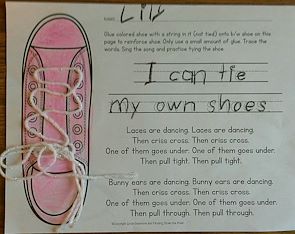 NAME: Lily
Glue colored shoe with a string in it (not tied) onto b/w shoe on this
page to reinforce shoe. Only use a small amount of glue. Trace the
words. Sing the song and practice tying the shoe.
I can tie
my own shoes
Laces are dancing. Laces are dancing.
Then criss cross. Then criss cross.
One of them goes under. One of them goes under.
Then pull tight. Then pull tight.
Bunny ears are dancing. Bunny ears are dancing.
Then criss cross. Then criss cross.
One of them goes under. One of them goes under.
Then pull through. Then pull through.